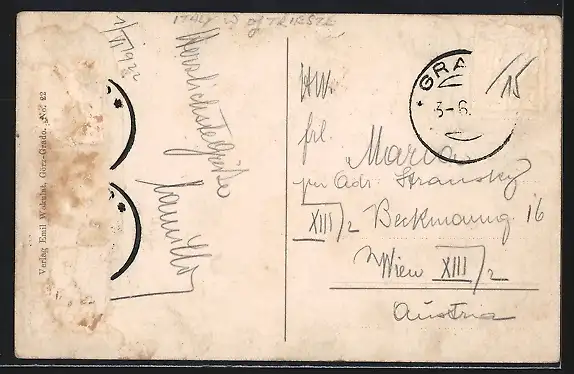 ITALY W of TRIESTE
1/VI 922
Herzlichste Grüße
Verlag Emil Wokulat, Görz-Grado. No. 22
GRA
3-6
/15
Frl.
Maria
per Adr. Stransky
XIII/2 Beckmanng 16
Wien XIII/2
Austria